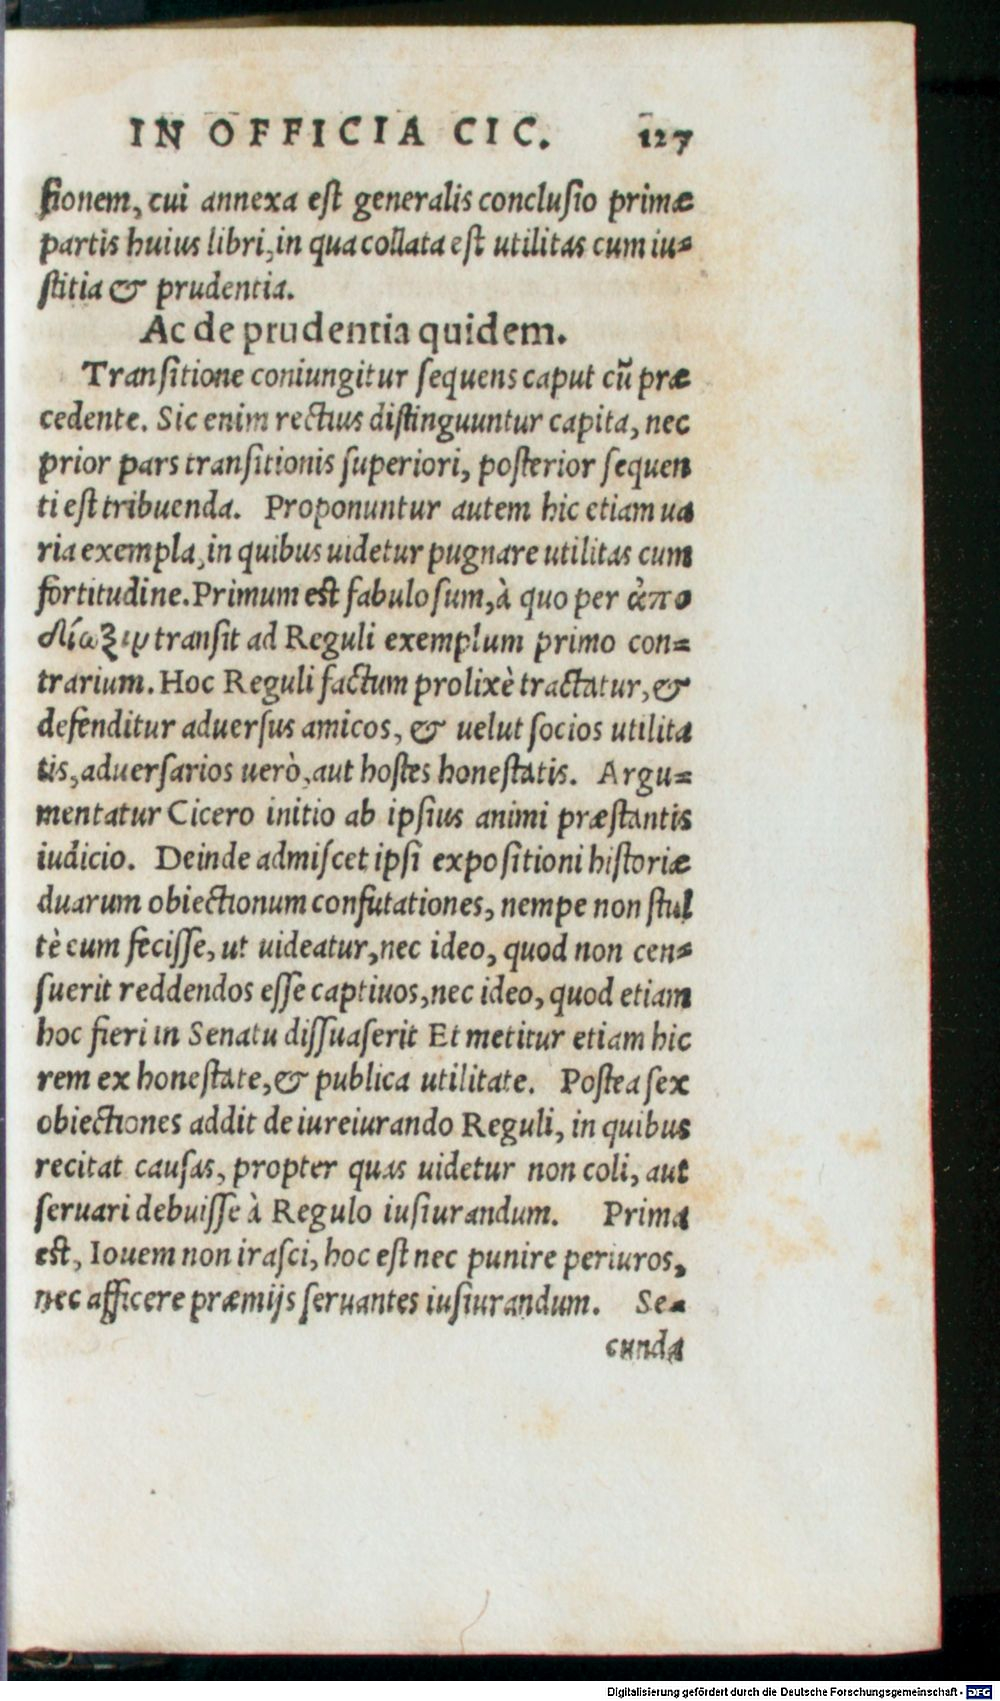 IN OFFICIA CIC. 127
ſionem, cui annexa eſt generalis concluſio primæ
partis huius libri, in qua collata eſt utilitas cum iu-
ſtitia & prudentia.
Ac de prudentia quidem.
Tranſitione coniungitur ſequens caput cū præ
cedente. Sic enim rectius diſtinguuntur capita, nec
prior pars tranſitionis ſuperiori, poſterior ſequen
ti eſt tribuenda. Proponuntur autem hic etiam ua
ria exempla, in quibus uidetur pugnare utilitas cum
fortitudine. Primum eſt fabuloſum, à quo per ἀπο
δίωξιν tranſit ad Reguli exemplum primo con-
trarium. Hoc Reguli factum prolixè tractatur, &
defenditur aduerſus amicos, & uelut ſocios utilita
tis, aduerſarios uerò, aut hoſtes honeſtatis. Argu-
mentatur Cicero initio ab ipſius animi præſtantis
iudicio. Deinde admiſcet ipſi expoſitioni hiſtoriæ
duarum obiectionum confutationes, nempe non ſtul
tè eum feciſſe, ut uideatur, nec ideo, quod non cen-
ſuerit reddendos eſſe captiuos, nec ideo, quod etiam
hoc fieri in Senatu diſſuaſerit Et metitur etiam hic
rem ex honeſtate, & publica utilitate. Poſtea ſex
obiectiones addit de iureiurando Reguli, in quibus
recitat cauſas, propter quas uidetur non coli, aut
ſeruari debuiſſe à Regulo iuſiurandum. Prima
eſt, Iouem non iraſci, hoc eſt nec punire periuros,
nec afficere præmijs ſeruantes iuſiurandum. Se-
cunda
Digitalisierung gefördert durch die Deutsche Forschungsgemeinschaft - DFG